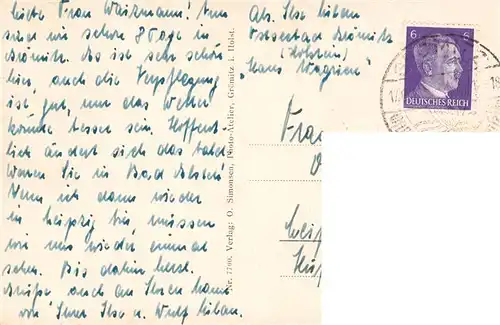 Liebe Frau Waizmann! Nun
sind wir schon 8 Tage in
Grömitz. Es ist sehr schön
hier, auch die Verpflegung
ist gut, nur das Wetter
könnte besser sein. Hoffent-
lich ändert sich das bald.
Waren Sie in Bad Elster?
Wenn ich dann wieder
in Leipzig bin, müssen
wir uns wieder einmal
sehen. Bis dahin herzl.
Grüße auch an Ihren Mann
von Ihrer Ilse u. Wulf
Abs. Ilse
Ostseebad Grömitz
(Holstein)
"Haus Wagrien"
6 6
DEUTSCHES REICH
Frau
Nr. 7700. Verlag: O. Simonsen, Photo-Atelier, Grömitz i. Holst.